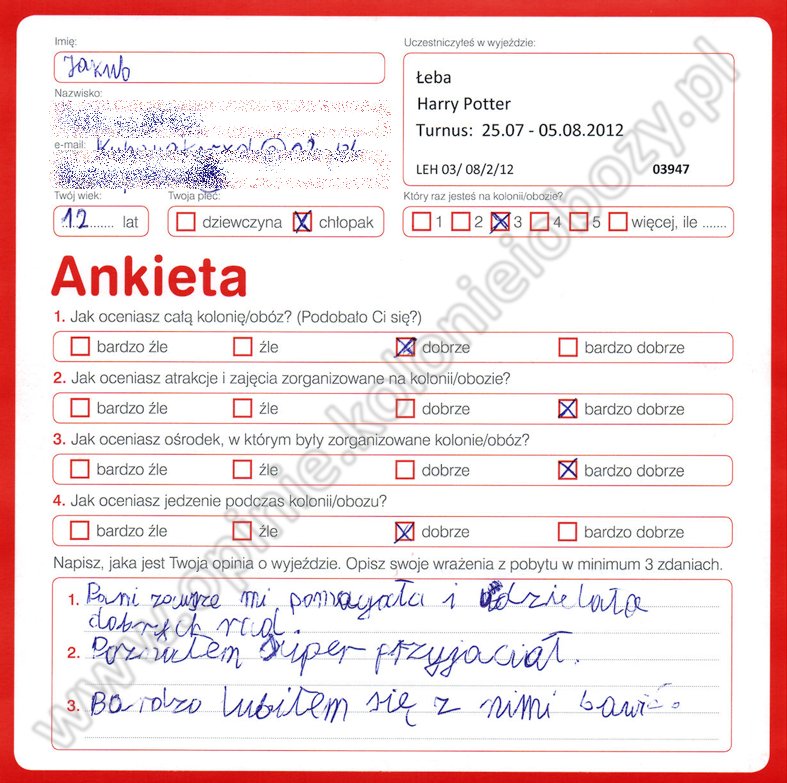 Imię:
Jakub
Nazwisko:
e-mail:
Twój wiek:
12 lat
Twoja płeć:
dziewczyna chłopak
Uczestniczyłeś w wyjeździe:
Łeba
Harry Potter
Turnus: 25.07 - 05.08.2012
LEH 03/ 08/2/12 03947
Który raz jesteś na kolonii/obozie?
1 2 3 4 5 więcej, ile .......
Ankieta
1. Jak oceniasz całą kolonię/obóz? (Podobało Ci się?)
bardzo źle źle dobrze bardzo dobrze
2. Jak oceniasz atrakcje i zajęcia zorganizowane na kolonii/obozie?
bardzo źle źle dobrze bardzo dobrze
3. Jak oceniasz ośrodek, w którym były zorganizowane kolonie/obóz?
bardzo źle źle dobrze bardzo dobrze
4. Jak oceniasz jedzenie podczas kolonii/obozu?
bardzo źle źle dobrze bardzo dobrze
Napisz, jaka jest Twoja opinia o wyjeździe. Opisz swoje wrażenia z pobytu w minimum 3 zdaniach.
1. Pani zawsze mi pomagała i udzielała
dobrych rad.
2. Poznałem super przyjaciół.
3. Bardzo lubiłem się z nimi bawić.
www.opinie.kolonieiobozy.pl